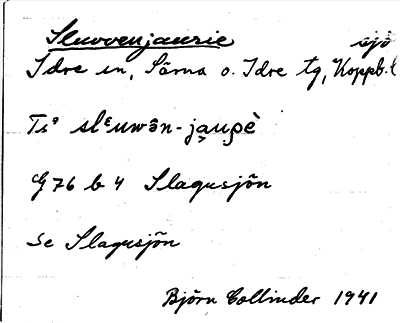 Sluvvenjaurie sjö
Idre sn, Särna o. Idre tg, Koppb. l
slᵋuwən-ja̬u̯ρè
G 76 b 4 Slagusjön
Se Slagusjön
Björn Collinder 1941